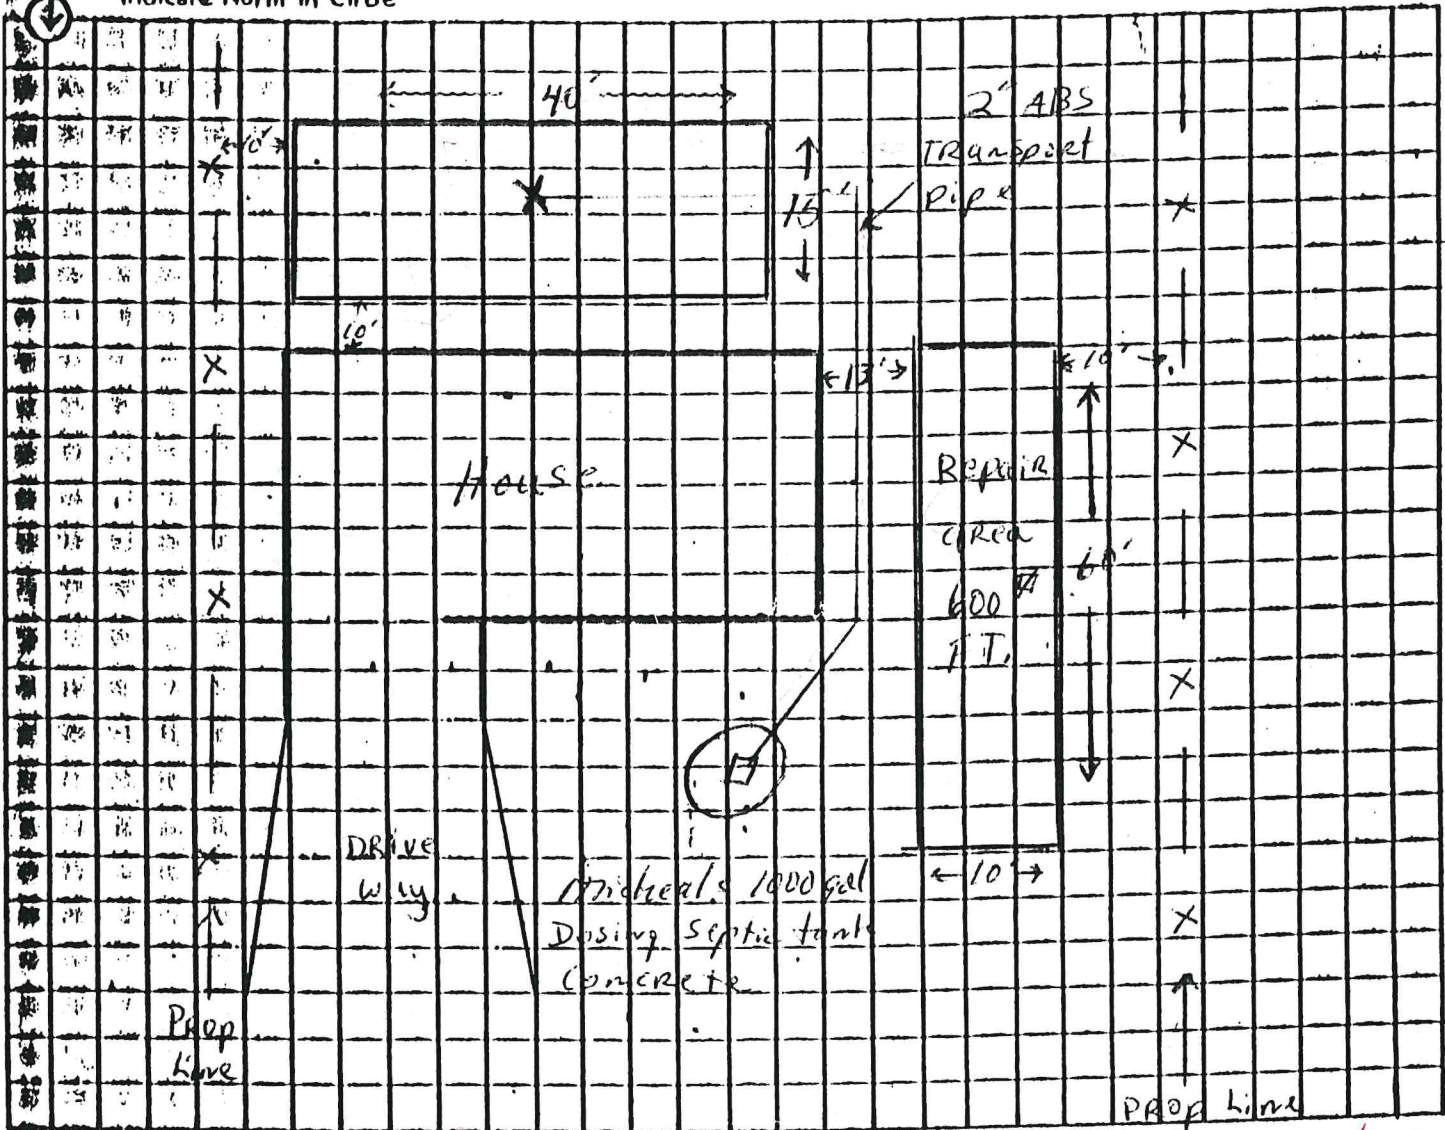 Indicate North in Circle
40'
2" ABS
Transport
Pipe
10'
15'
10'
13'
10'
House
Repair
area
600
FT.
60'
Drive
way
10'
Micheal's 1000 gal
Dosing Septic tank
Concrete
Prop
Line
Prop Line